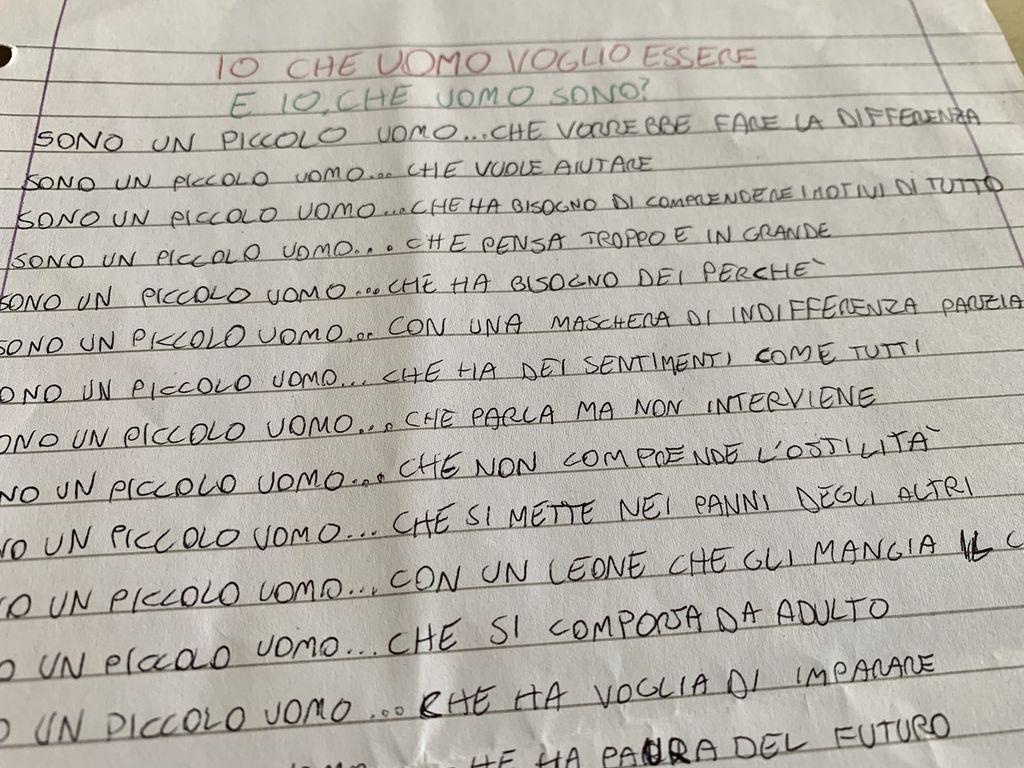 IO CHE UOMO VOGLIO ESSERE
E IO, CHE UOMO SONO?
SONO UN PICCOLO UOMO...CHE VORREBBE FARE LA DIFFERENZA
SONO UN PICCOLO UOMO... CHE VUOLE AIUTARE
SONO UN PICCOLO UOMO...CHE HA BISOGNO DI COMPRENDERE I MOTIVI DI TUTTO
SONO UN PICCOLO UOMO... CHE PENSA TROPPO E IN GRANDE
SONO UN PICCOLO UOMO...CHE HA BISOGNO DEI PERCHE`
SONO UN PICCOLO UOMO... CON UNA MASCHERA DI INDIFFERENZA PARZIA
ONO UN PICCOLO UOMO... CHE HA DEI SENTIMENTI COME TUTTI
ONO UN PICCOLO UOMO... CHE PARLA MA NON INTERVIENE
NO UN PICCOLO UOMO... CHE NON COMPRENDE L'OSTILITA`
NO UN PICCOLO UOMO... CHE SI METTE NEI PANNI DEGLI ALTRI
O UN PICCOLO UOMO... CON UN LEONE CHE GLI MANGIA IL C
O UN PICCOLO UOMO... CHE SI COMPORTA DA ADULTO
O UN PICCOLO UOMO... CHE HA VOGLIA DI IMPARARE
HE HA PAURA DEL FUTURO